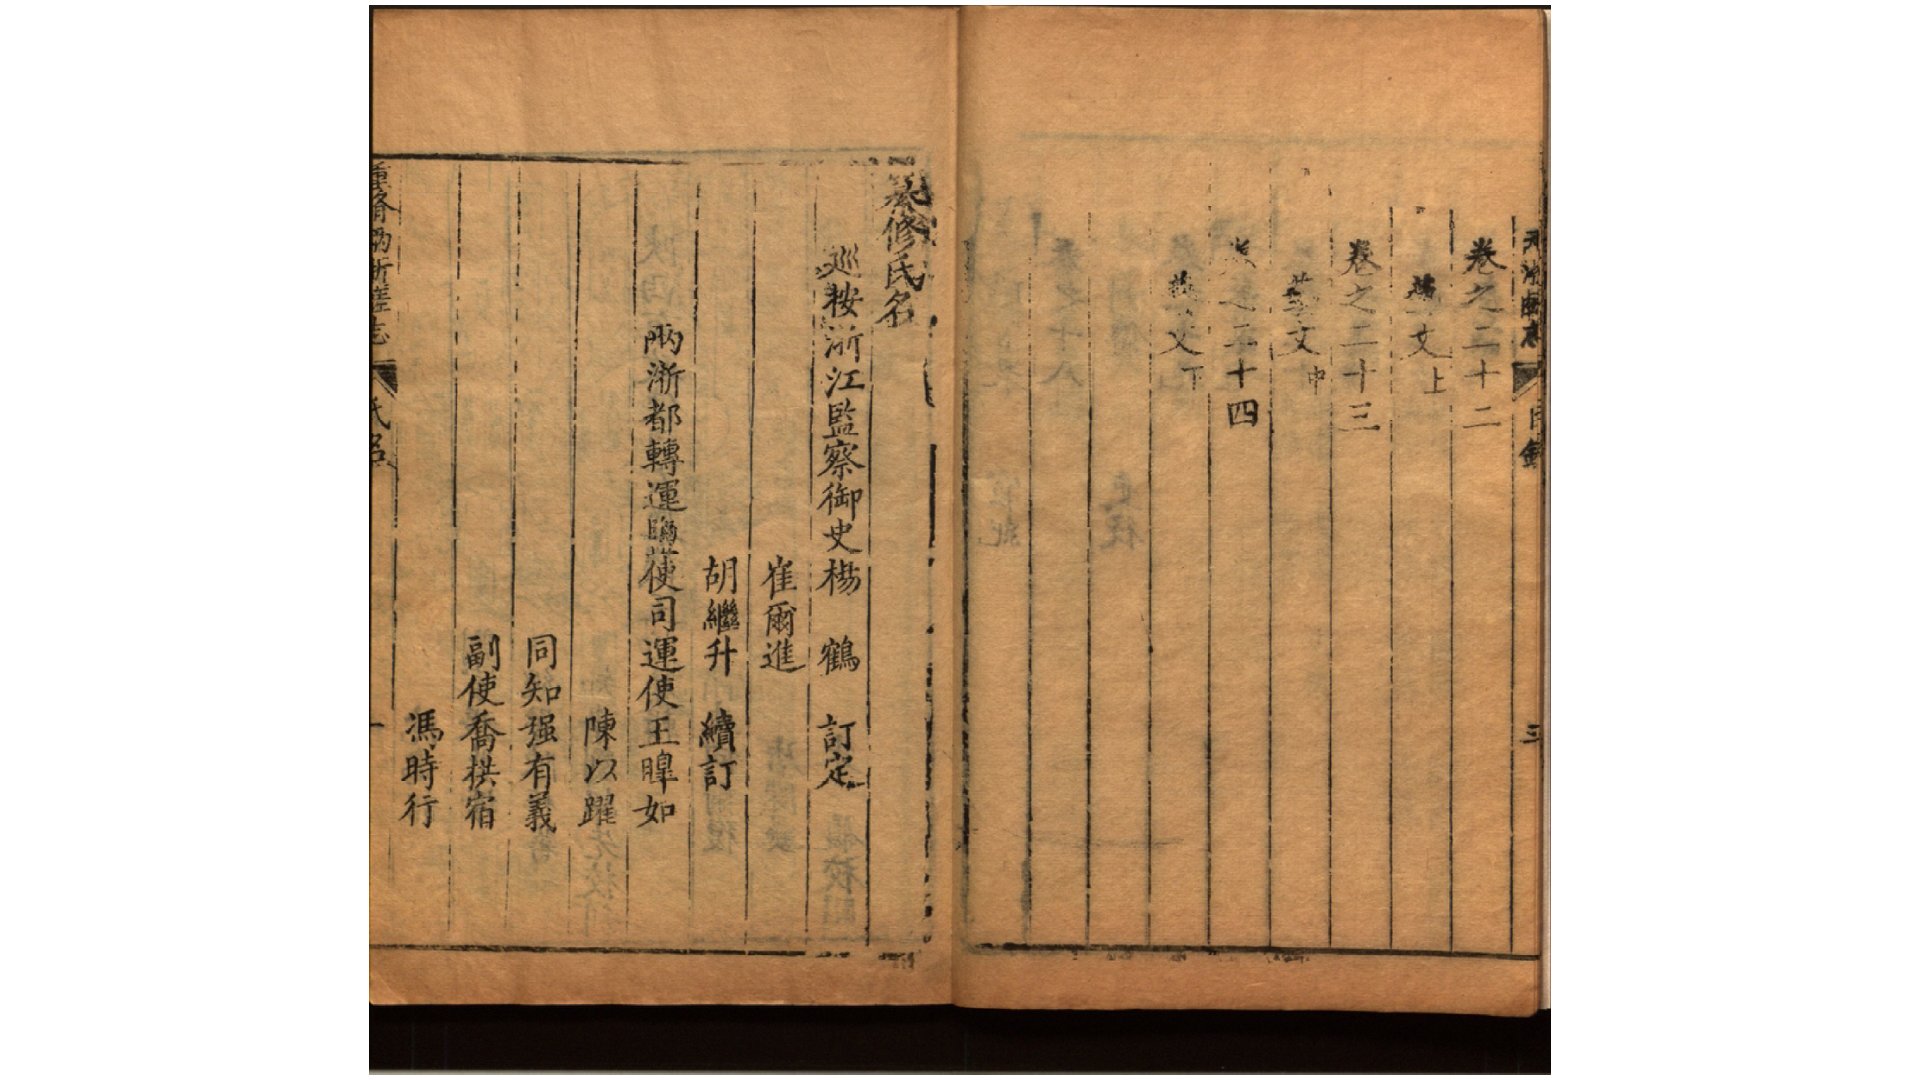 卷之二十二
藝文上
卷之二十三
藝文中
卷之二十四
藝文下
目錄
三
纂修氏名
巡按浙江監察御史楊 鶴 訂定
崔爾進
胡繼升 續訂
兩浙都轉運鹽使司運使王𣈶如
陳以躍
同知强有義
副使喬拱宿
馮時行
重修兩浙鹺志
氏名
一